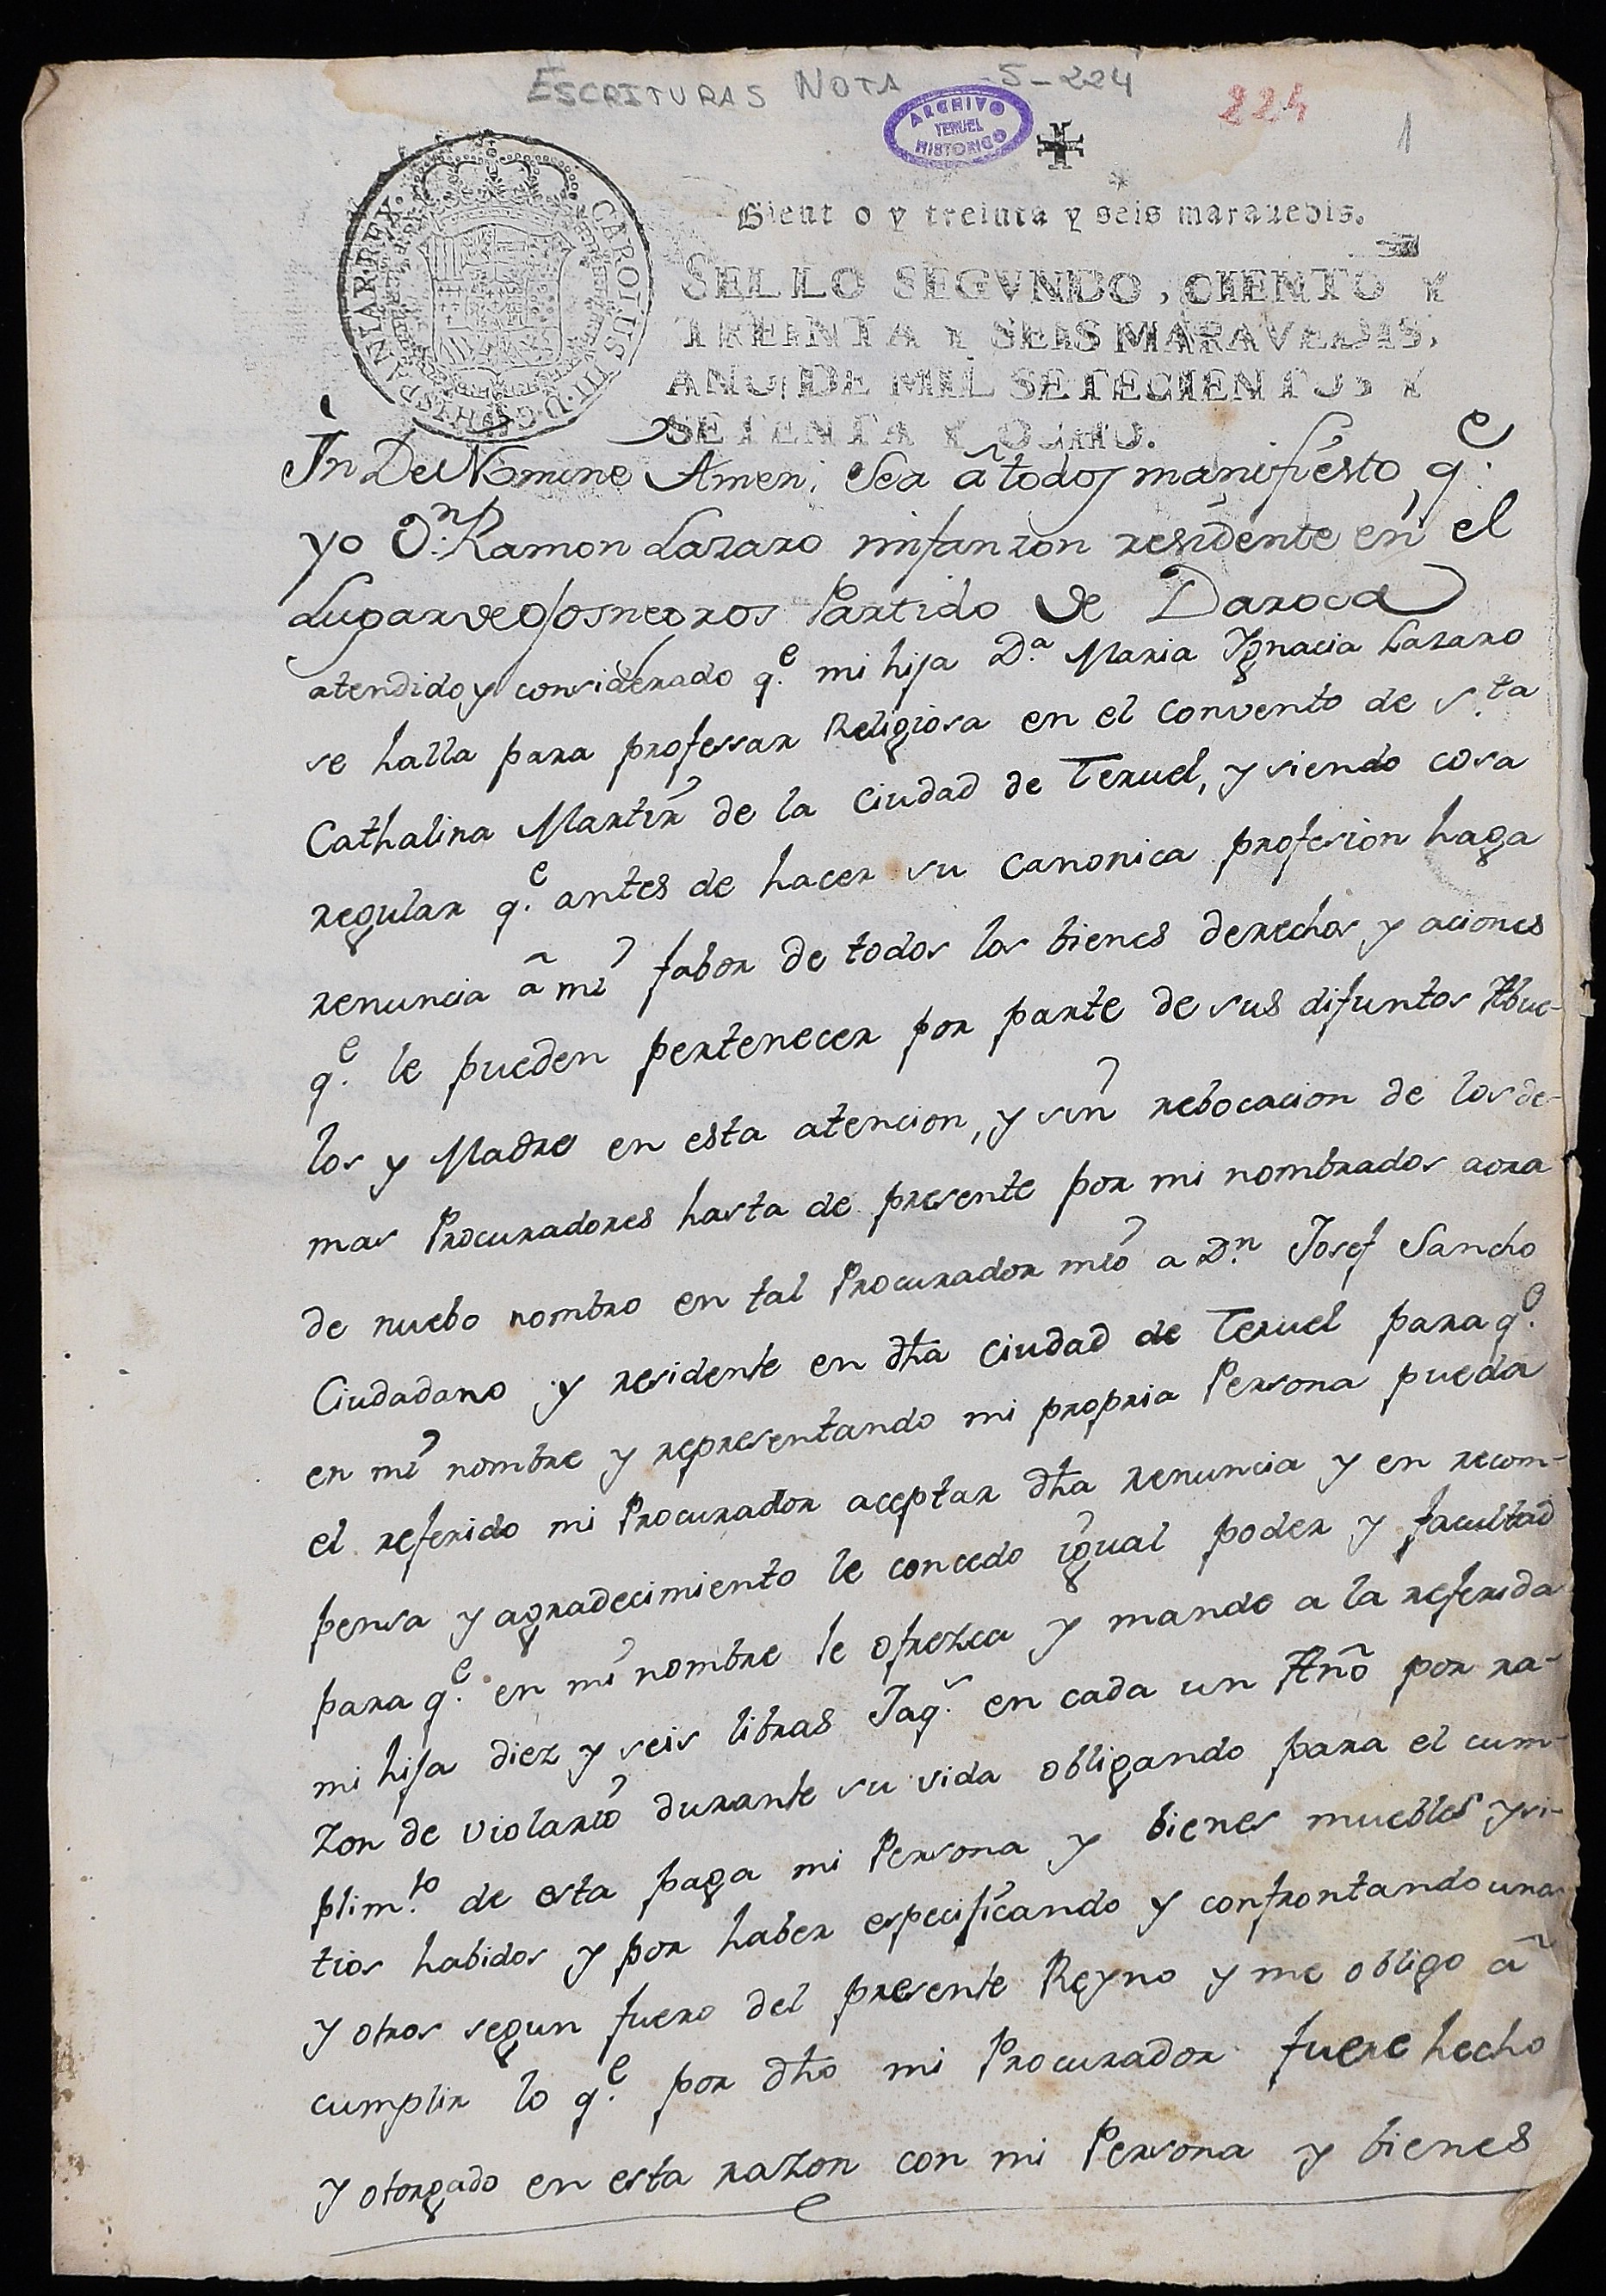 ESCRITURAS NOTA -5-224
224
1
ARCHIVO
TERUEL
HISTORICO
CAROLUS III D G HISPANIAR REX
Cient o y treinta y seis maravedis.
SELLO SEGVNDO, CIENTO Y
TREINTA Y SEIS MARAVEDIS,
AÑO DE MIL SETECIENTOS Y
SETENTA Y OCHO.
In Dei Nomine Amen; Sea â todos manifiesto, q.e
yo D.n Ramon Lazaro infanzon residente en el
Lugar de Ojosnegros Partido de Daroca
atendido y considerado q.e mi hija D.a Maria Ignacia Lazaro
se halla para professar Religiosa en el convento de S.ta
Cathalina Martir de la Ciudad de Teruel, y siendo cosa
regular q.e antes de hacer su canonica profesion haga
renuncia â mi fabor de todos los bienes derechos y aciones
q.e le pueden pertenecer por parte de sus difuntos Abue-
los y Madre en esta atencion, y sin rebocacion de los de-
mas Procuradores hasta de presente por mi nombrados aora
de nuebo nombro en tal Procurador mio a D.n Josef Sancho
Ciudadano y residente en dha Ciudad de Teruel para q.e
en mi nombre y representando mi propria Persona pueda
el referido mi Procurador aceptar dha renuncia y en recom-
pensa y agradecimiento le concedo igual poder y facultad
para q.e en mi nombre le ofrezca y mando a la referida
mi hija diez y seis libras Jaq.s en cada un Año por ra-
zon de violario durante su vida obligando para el cum-
plim.to de esta paga mi Persona y bienes muebles y si-
tios habidos y por haber especificando y confrontando unos
y otros segun fuero del presente Reyno y me obligo â
cumplir lo q.e por dho mi Procurador fuere hecho
y otorgado en esta razon con mi Persona y bienes